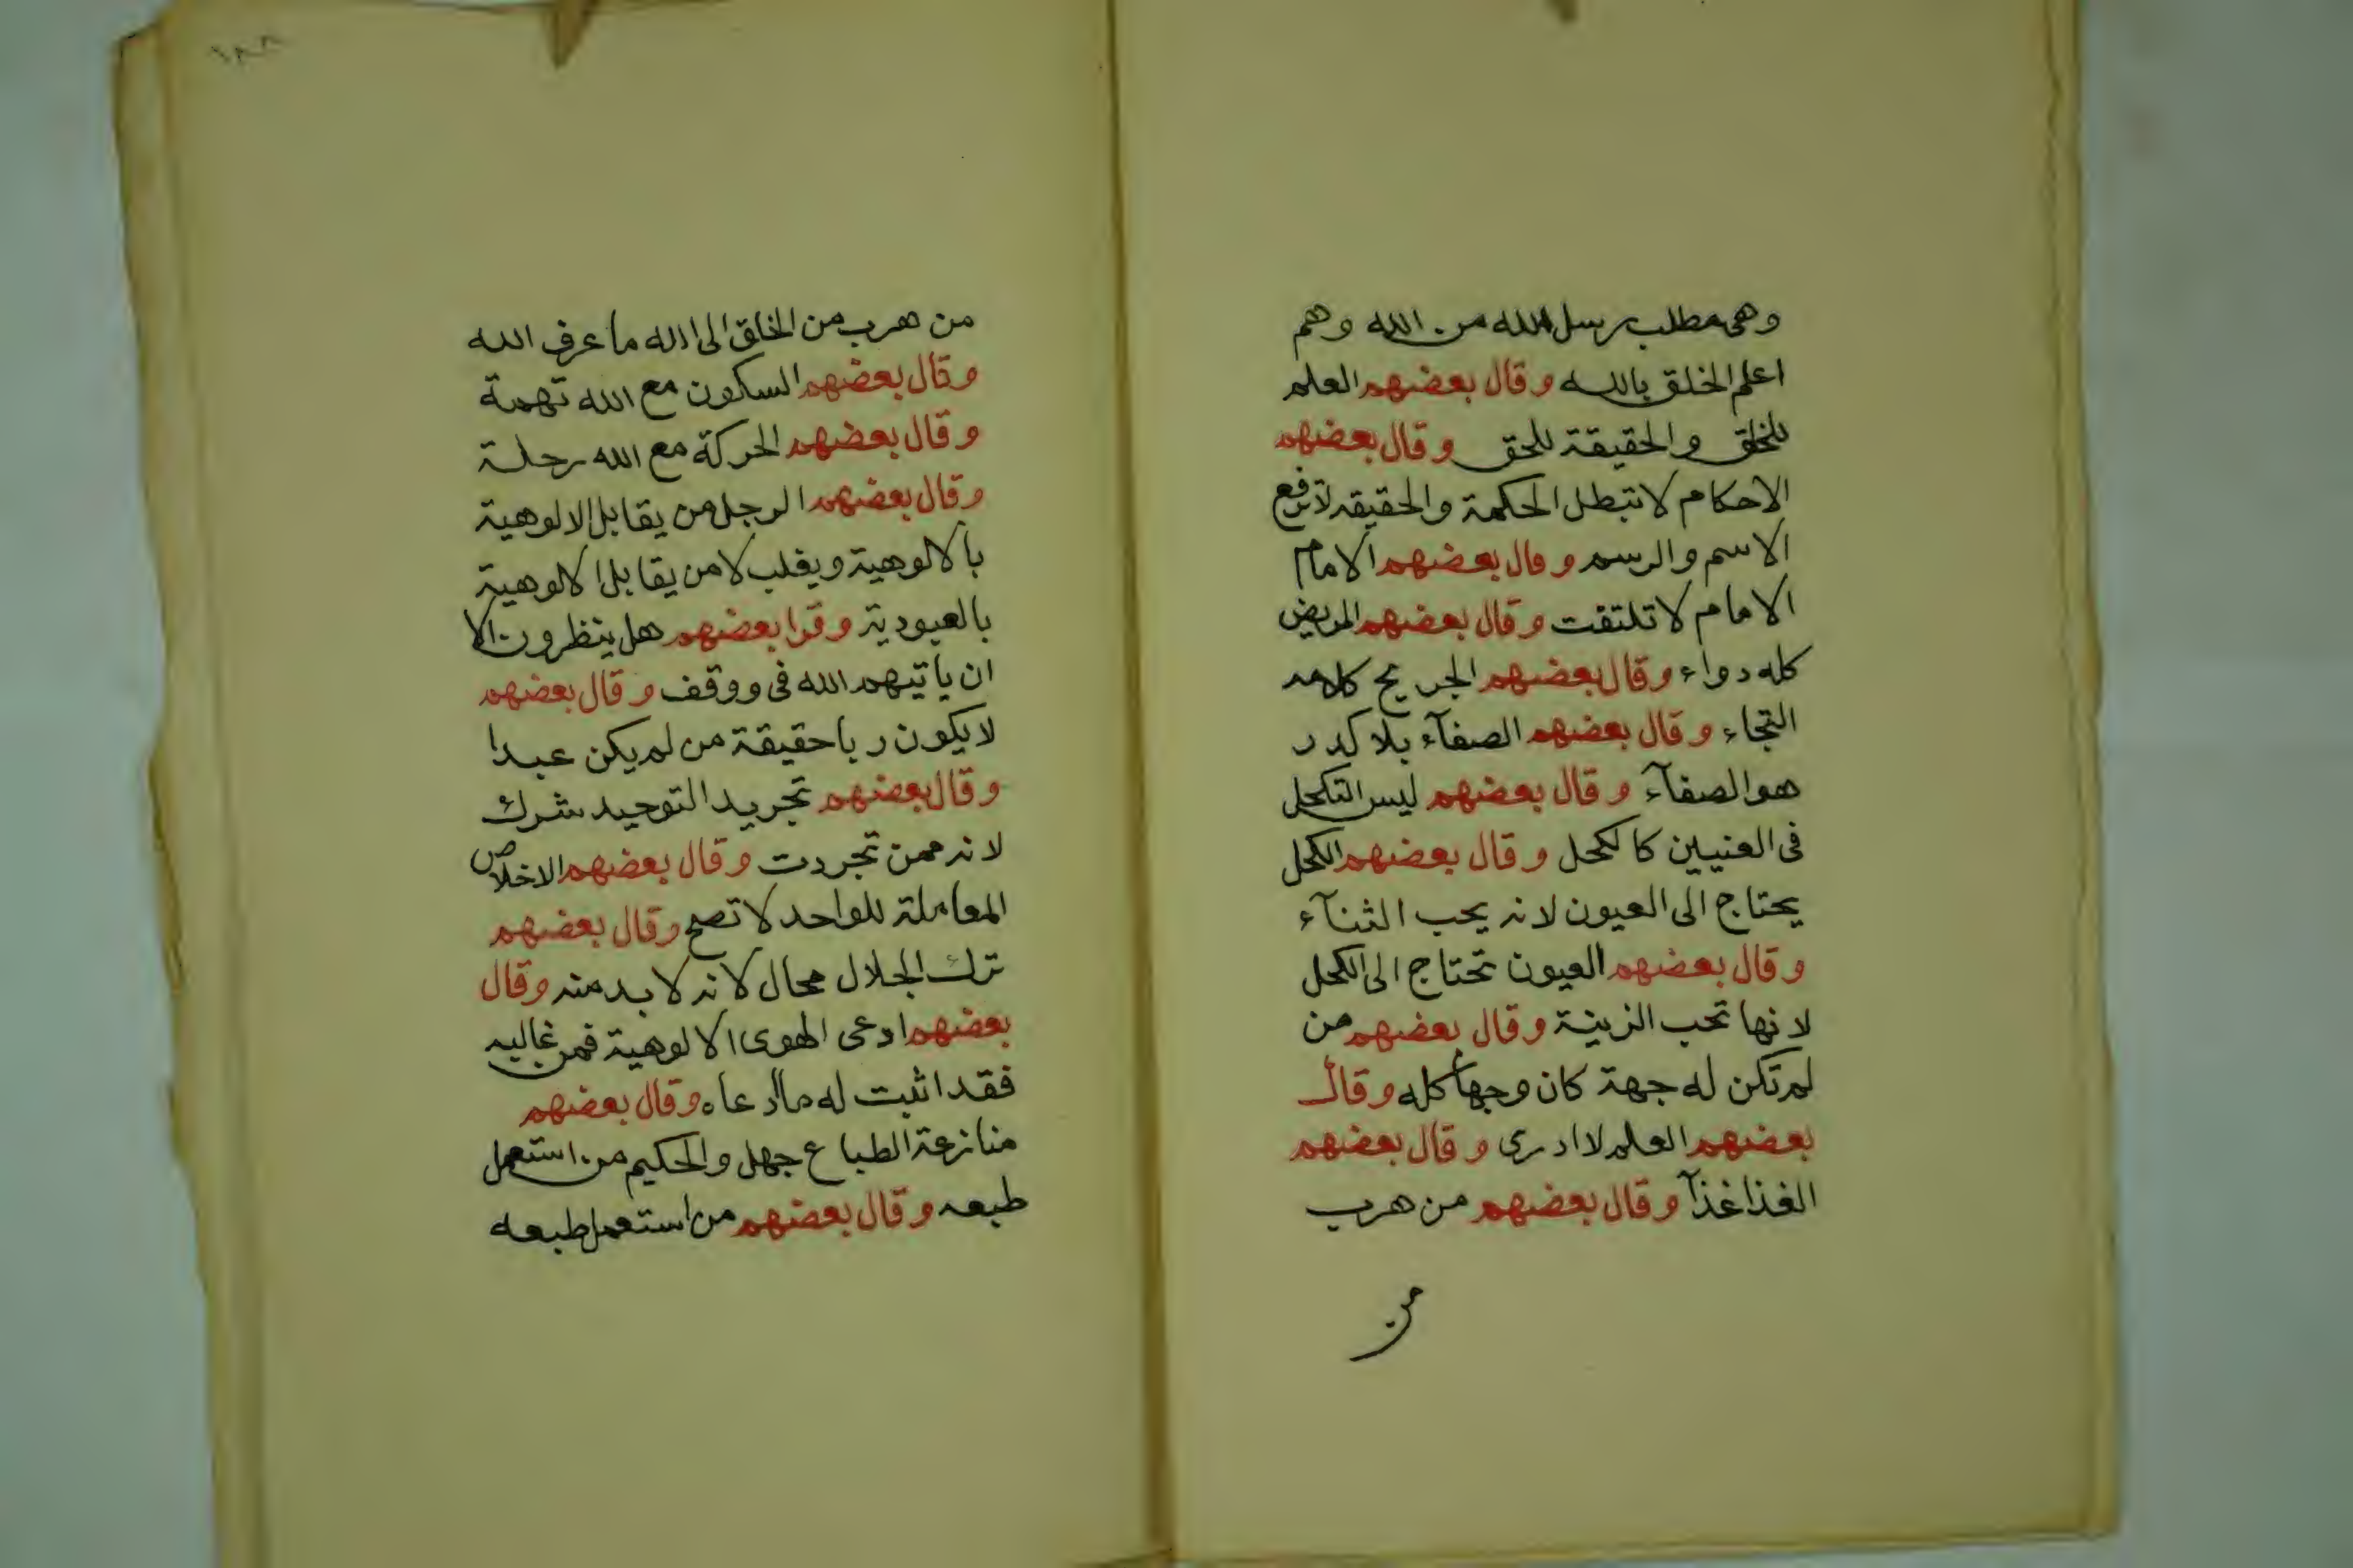 وهى مطلب رسل الله من الله وهم
اعلم الخلق بالله وقال بعضهم العلم
للخلق والحقيقة للحق وقال بعضهم
الاحكام لا تبطل الحكمة والحقيقة لا ترفع
الاسم والرسم وقال بعضهم الامام
الامام لا تلتفت وقال بعضهم المريض
كله دواء وقال بعضهم الجريح كلامه
التجاء وقال بعضهم الصفآء بلا كدر
هو الصفآء وقال بعضهم ليس التكحل
فى العنيين كالكحل وقال بعضهم الكحل
يحتاج الى العيون لانه يحب الثنآء
وقال بعضهم العيون تحتاج الى الكحل
لانها تحب الزينة وقال بعضهم من
لم تكن له جهة كان وجها كله وقال
بعضهم العلم لا ادرى وقال بعضهم
الغذا غذآ وقال بعضهم من هرب
من
١٨٨
من هرب من الخلق الى الله ما عرف الله
وقال بعضهم السكون مع الله تهمة
وقال بعضهم الحركة مع الله رحلة
وقال بعضهم الرجل من يقابل الالوهية
بالالوهية ويغلب لا من يقابل الالوهية
بالعبودية وقرا بعضهم هل ينظرون الا
ان ياتيهم الله فى ووقف وقال بعضهم
لا يكون ربا حقيقة من لم يكن عبدا
وقال بعضهم تجريد التوحيد شرك
لانه ممن تجردت وقال بعضهم الاخلاص
المعاملة للواحد لا تصح وقال بعضهم
ترك الجلال محال لانه لا بد منه وقال
بعضهم ادعى الهوى الالوهية فمن غالبه
فقد اثبت له ما ادعاه وقال بعضهم
منازعة الطباع جهل والحكيم من استعمل
طبعه وقال بعضهم من استعمل طبعه